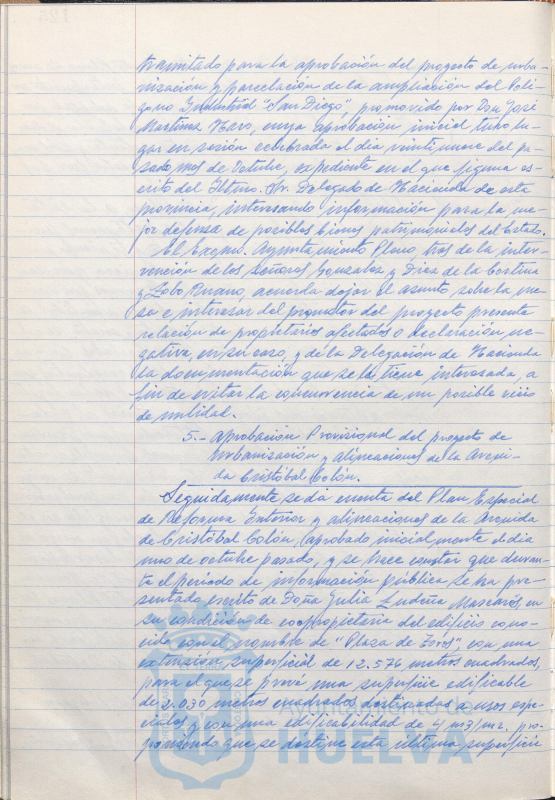 tramitado para la aprobación del proyecto de urba-
nización y parcelación de la ampliación del Polí-
gono Industrial "San Diego", promovido por Don José
Martínez Haro, cuya aprobación inicial tuvo lu-
gar en sesión celebrada el día veintinueve del pa-
sado mes de Octubre, expediente en el que figura es-
crito del Iltmo. Sr. Delegado de Hacienda de esta
provincia, interesando información para la me-
jor defensa de posibles bienes patrimoniales del Estado.
El Excmo. Ayuntamiento Pleno, tras de la inter-
vención de los señores González y Díez de la Cortina
y Lobo, acuerda dejar el asunto sobre la me-
sa e interesar del promotor del proyecto presente
relación de propietarios afectados o declaración ne-
gativa, en su caso, y de la Delegación de Hacienda
la documentación que se le tiene interesada, a
fin de evitar la concurrencia de un posible vicio
de nulidad.
5.- Aprobación Provisional del proyecto de
Urbanización y alineaciones de la Aveni-
da Cristóbal Colón.
Seguidamente se da cuenta del Plan Especial
de Reforma Interior y alineaciones de la Avenida
de Cristóbal Colón, aprobado inicialmente el día
uno de octubre pasado, y se hace constar que duran-
te el período de información pública se ha pre-
sentado escrito de Doña Julia Ludeña Mascarós, en
su condición de copropietaria del edificio cono-
cido con el nombre de "Plaza de Toros", con una
extensión superficial de 12.576 metros cuadrados,
para el que se prevé una superficie edificable
de 2.030 metros cuadrados destinados a usos espe-
ciales, y con una edificabilidad de 4 m3/m2, pro-
poniendo que se destine esta última superficie
HUELVA